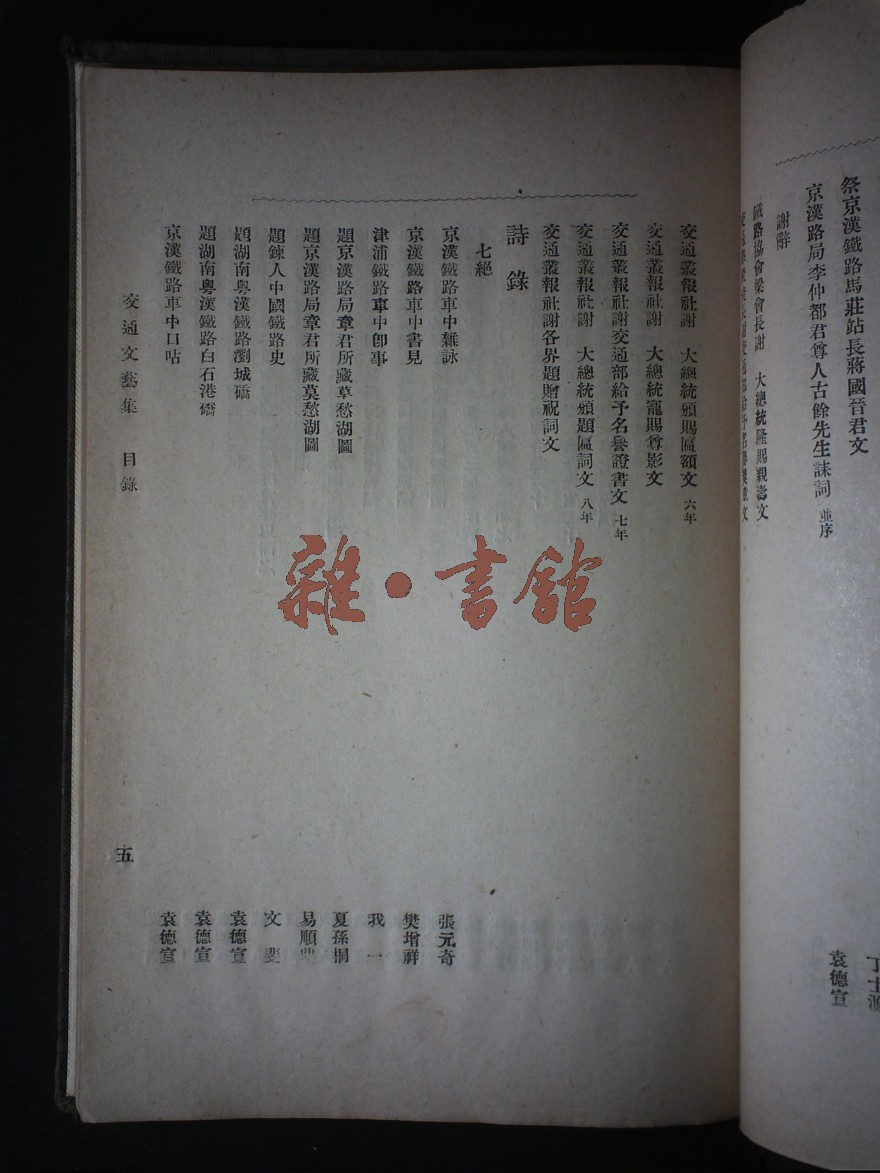 祭京漢鐵路馬莊站長蔣國晉君文
京漢路局李仲都君尊人古餘先生誄詞 並序 袁德宣
謝辭
鐵路協會梁會長謝 大總統隆賜親壽文
交通叢報社謝 大總統頒賜匾額文 六年
交通叢報社謝 大總統寵賜尊影文
交通叢報社謝交通部給予名譽證書文 七年
交通叢報社謝 大總統頒題匾詞文 八年
交通叢報社謝各界題贈祝詞文
詩錄
七絕
京漢鐵路車中雜詠 張元奇
京漢鐵路車中書見 樊增祥
津浦鐵路車中卽事 我一
題京漢路局章君所藏莫愁湖圖 夏孫桐
題京漢路局章君所藏莫愁湖圖 易順
題鍊人中國鐵路史 文斐
題湖南粵漢鐵路瀏城礄 袁德宣
題湖南粵漢鐵路白石港礄 袁德宣
京漢鐵路車中口呫 袁德宣
交通文藝集 目錄 五
雜·書館